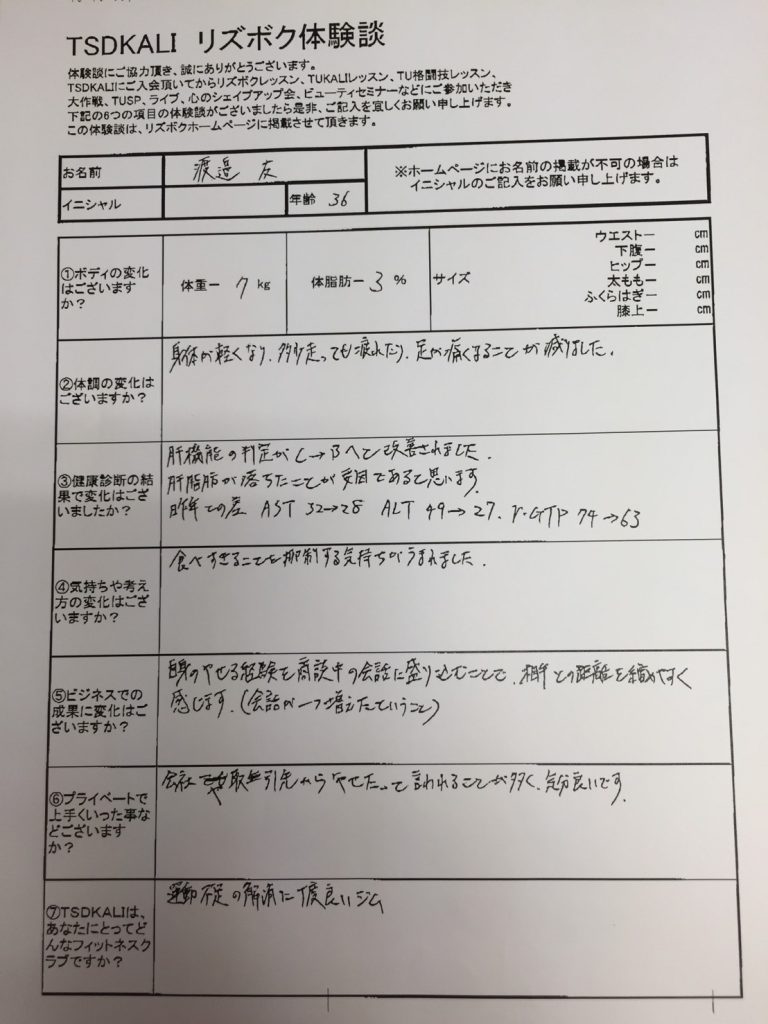 TSDKALI リズボク体験談
体験談にご協力頂き、誠にありがとうございます。
TSDKALIにご入会頂いてからリズボクレッスン、TUKALIレッスン、TU格闘技レッスン、
大作戦、TUSP、ライブ、心のシェイプアップ会、ビューティセミナーなどにご参加いただき
下記の6つの項目の体験談がございましたら是非、ご記入を宜しくお願い申し上げます。
この体験談は、リズボクホームページに掲載させて頂きます。
お名前 渡邉
イニシャル 年齢 36
※ホームページにお名前の掲載が不可の場合は
イニシャルのご記入をお願い申し上げます。
①ボディの変化
はございます
か？
体重ー 7 kg
体脂肪ー 3 %
サイズ
ウエストー cm
下腹ー cm
ヒップー cm
太ももー cm
ふくらはぎー cm
膝上ー cm
②体調の変化は
ございますか？
身体が軽くなり、多少走っても疲れたり、足が痛くなることが減りました。
③健康診断の結
果で変化はござ
いましたか？
肝機能の判定がC→Bへと改善されました。
肝脂肪が落ちたことが要因であると思います。
昨年との差 AST 32→28 ALT 49→27. γ-GTP 74→63
④気持ちや考え
方の変化はござ
いますか？
食べすぎることを抑制する気持ちがうまれました。
⑤ビジネスでの
成果に変化はご
ざいますか？
自身のやせる経験を商談中の会話に盛り込むことで、相手との距離を縮めやすく
感じます。(会話が一つ増えたということ)
⑥プライベートで
上手くいった事な
どございます
か？
会社や取引先からやせたって言われることが多く、気分良いです。
⑦TSDKALIは、
あなたにとってど
んなフィットネスク
ラブですか？
運動不足の解消に丁度良いジム